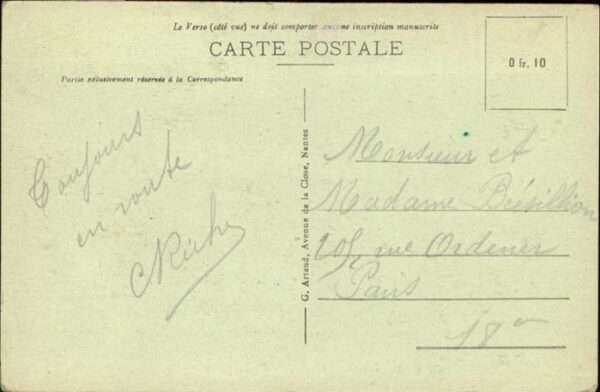 Le Verso (côté vue) ne doit comporter aucune inscription manuscrite
CARTE POSTALE
0 fr. 10
Partie exclusivement réservée à la Correspondance
Toujours
en route
G. Artaud, Avenue de la Close, Nantes
Monsieur et
Madame Brésillion
205, rue Ordener
Paris
18e